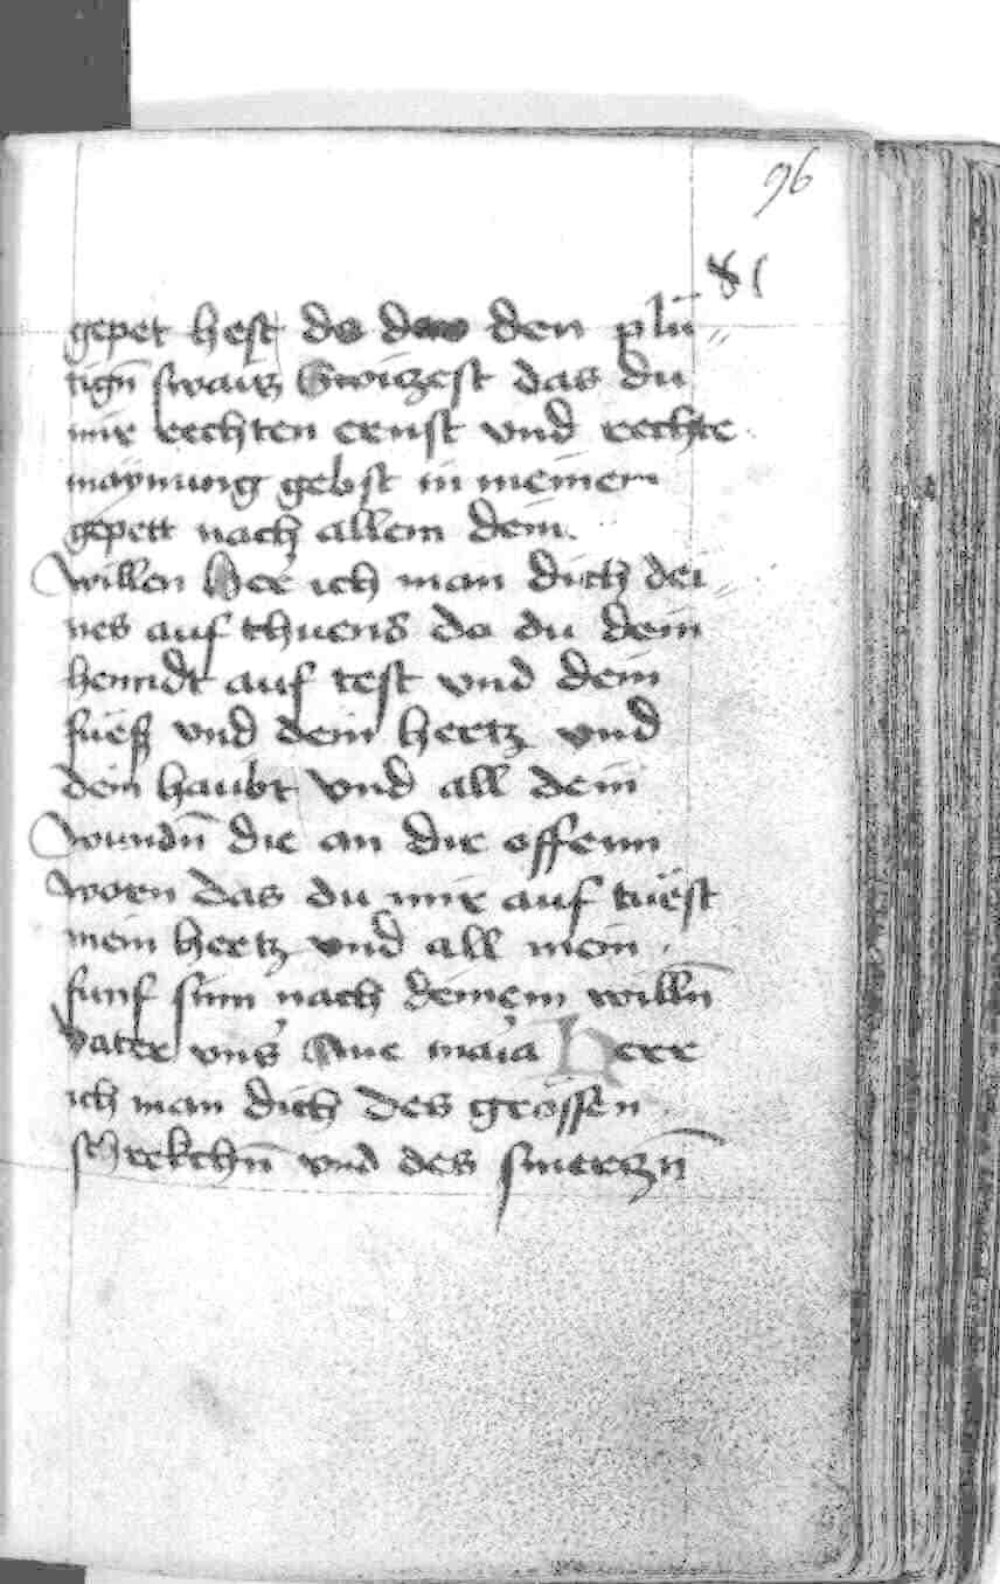 96
81
gepet hest do den plu„
tign̄ swaiß swiczest das du
mir rechten ernst vnd rechte
maynung gebst in meinem
gepett nach allem dein
willen her ich man dich dei„
nes auf thuens do du dein
henndt auf test vnd dein
füeß vnd dein hertz vnd
dein haubt vnd all dein
wundn̄ die an dir offenn
worn das du mir auf tüest
mein hertz vnd all mein
funf sinn nach deinem willn̄
vater vns' Aue maīa herr
ich man dich des grossen
schrekchn̄ vnd des smerczn̄